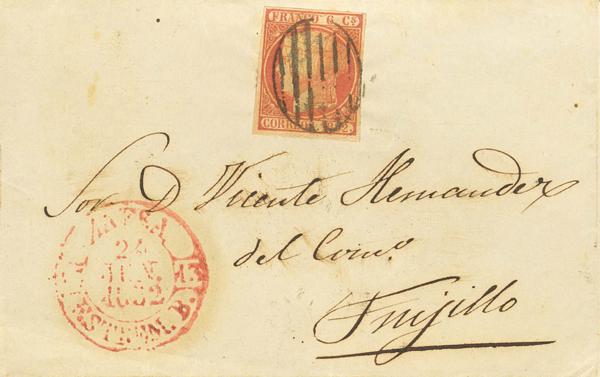 FRANCO 6 Cs
CORREOS 1852
Sor. D Vicente Hernandez
del Como.
Trujillo
ZAFRA
24
JUN.
1852
ESTREM. B.
13